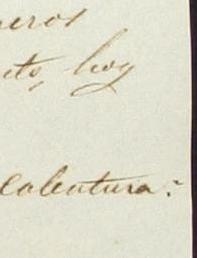 neros
ito, hoy
Calentura: